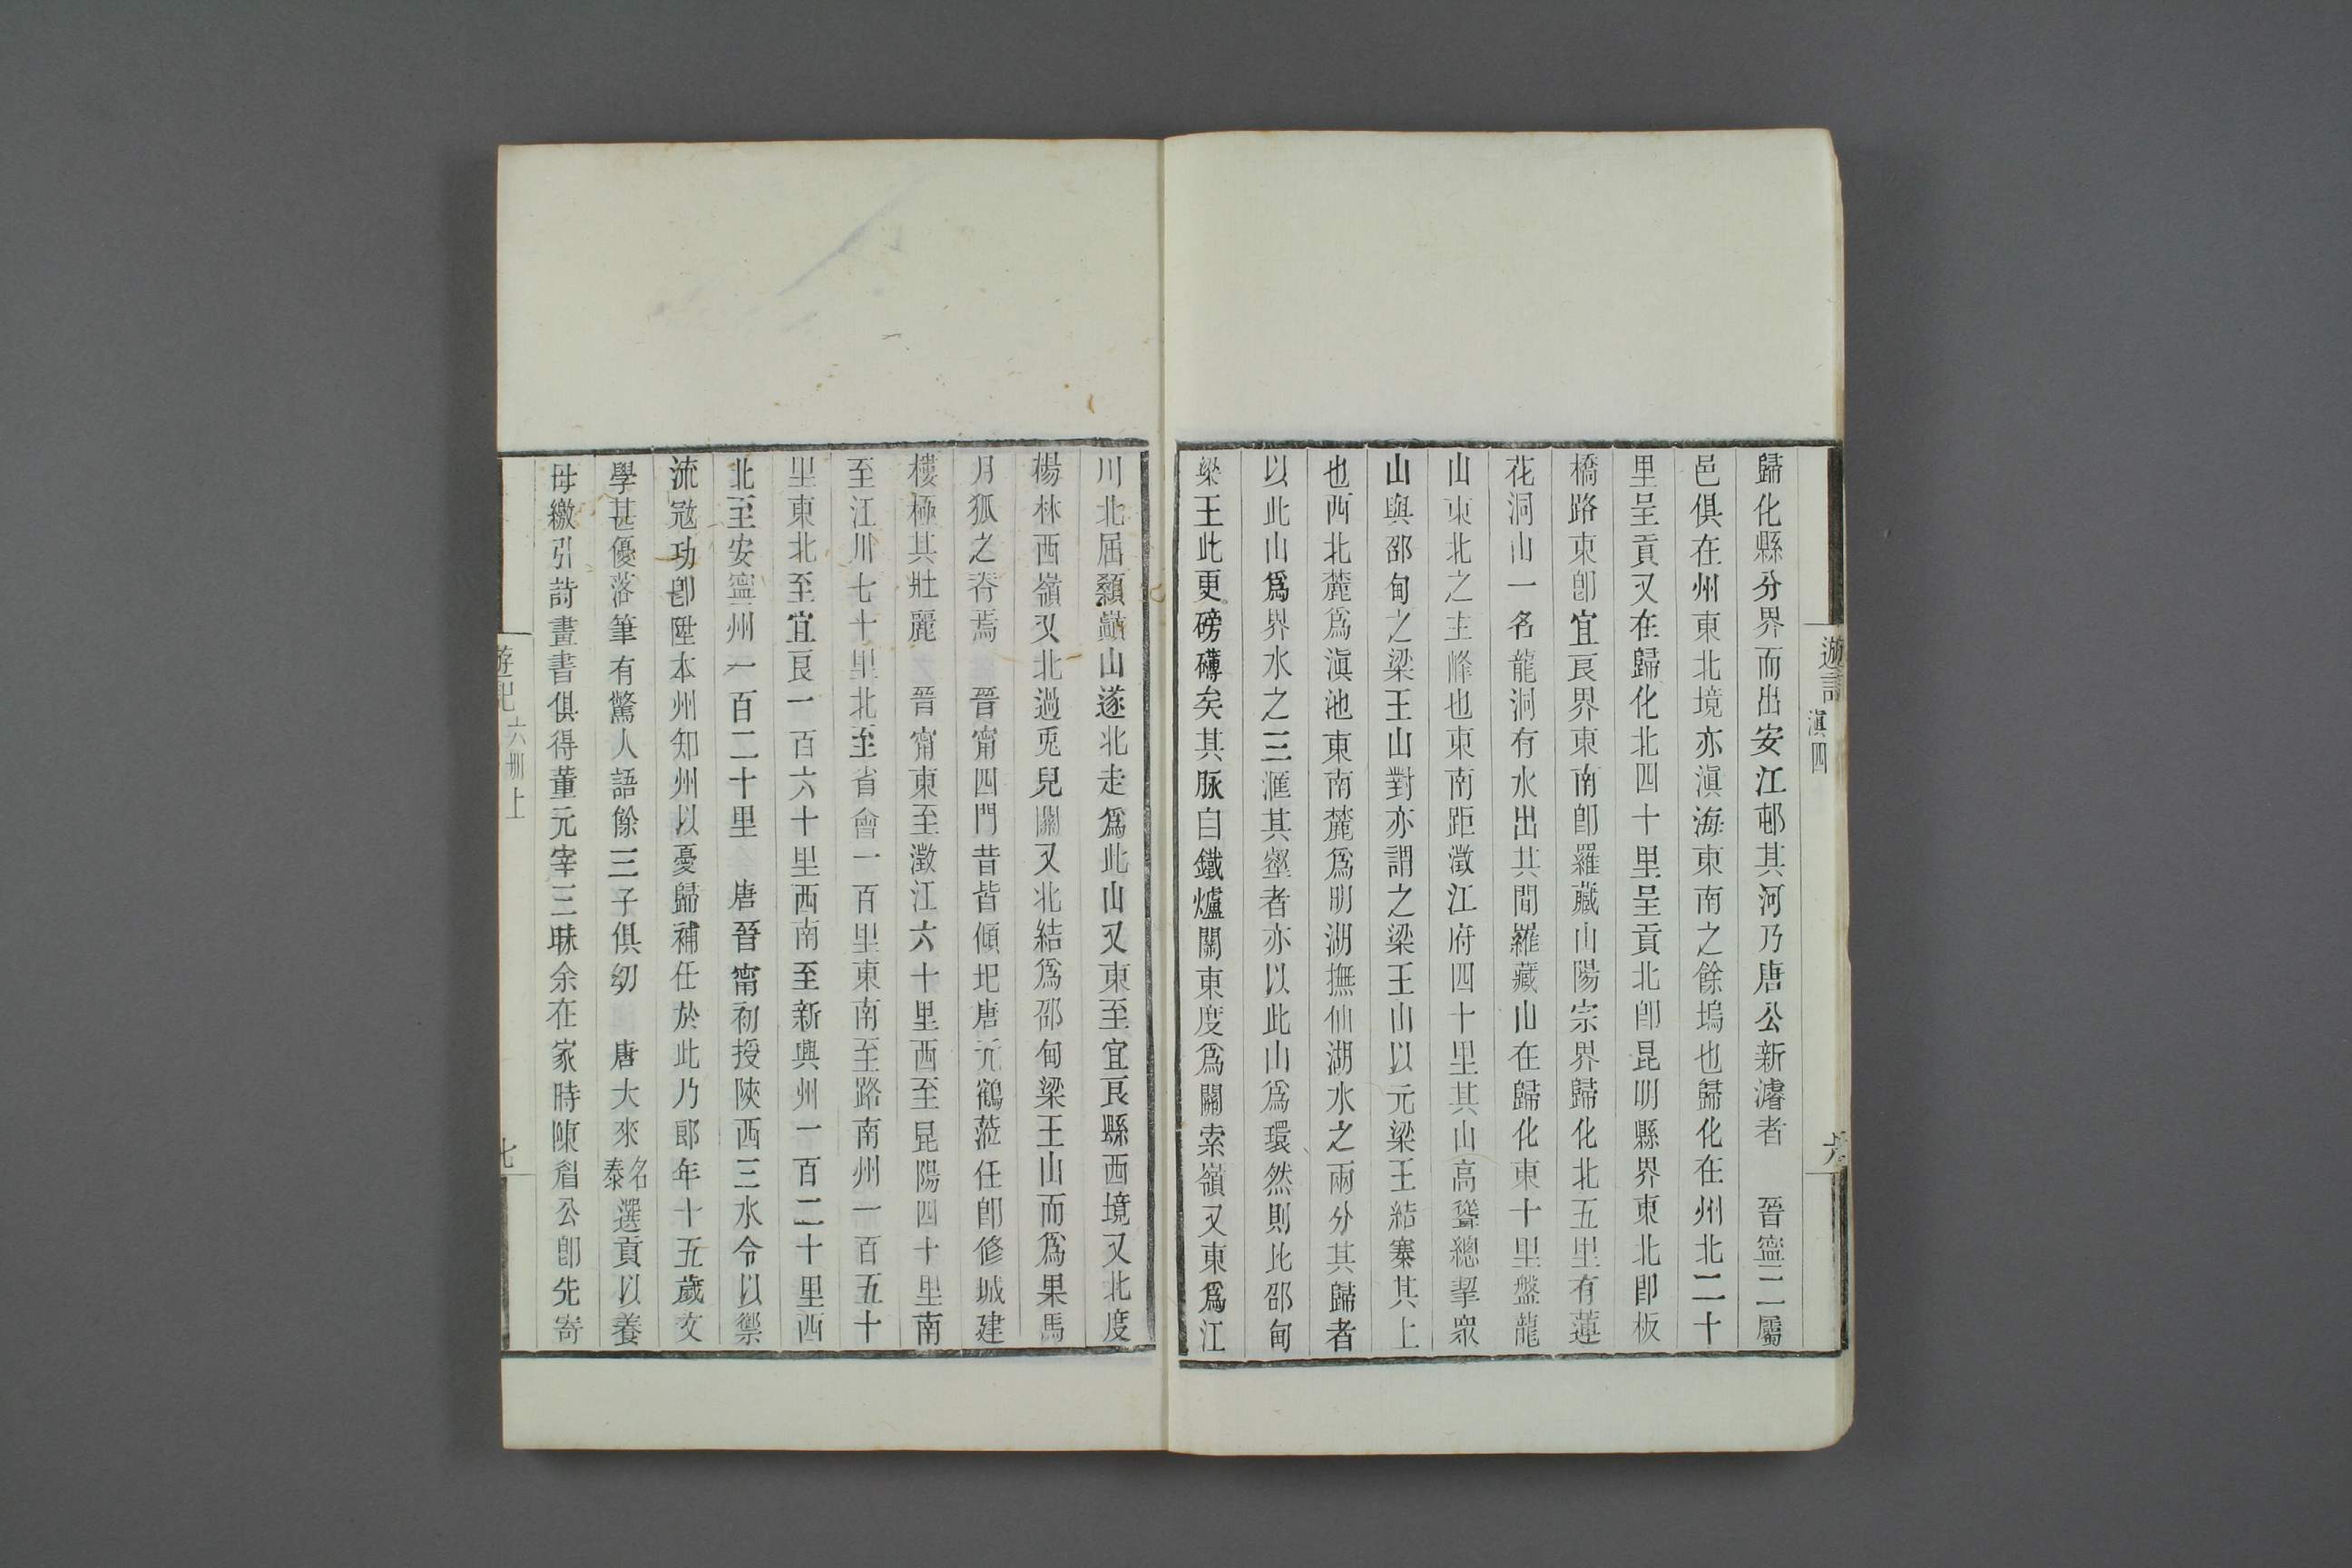 遊記
滇四
六
歸化縣分界而出安江邨其河乃唐公新濬者　晉寧二屬
邑俱在州東北境亦滇海東南之餘塢也歸化在州北二十
里呈貢又在歸化北四十里呈貢北卽昆明縣界東北卽板
橋路東卽宜良界東南卽羅藏山陽宗界歸化北五里有蓮
花洞山一名龍洞有水出其間羅藏山在歸化東十里盤龍
山東北之主峰也東南距澂江府四十里其山高聳總挈衆
山與邵甸之梁王山對亦謂之梁王山以元梁王結寨其上
也西北麓爲滇池東南麓爲明湖撫仙湖水之兩分其歸者
以此山爲界水之三滙其壑者亦以此山爲環然則比邵甸
梁王此更磅礴矣其脉自鐵爐關東度爲關索嶺又東爲江
川北屈顙巔山遂北走爲此山又東至宜良縣西境又北度
楊林西嶺又北過兎兒關又北結爲邵甸梁王山而爲果馬
月狐之脊焉　晉甯四門昔皆傾圯唐元鶴蒞任卽修城建
樓極其壯麗　晉甯東至澂江六十里西至昆陽四十里南
至江川七十里北至省會一百里東南至路南州一百五十
里東北至宜良一百六十里西南至新興州一百二十里西
北至安寧州一百二十里　唐晉甯初授陝西三水令以禦
流寇功卽陞本州知州以憂歸補任於此乃郎年十五歲文
學甚優落筆有驚人語餘三子俱幼　唐大來名泰選貢以養
母繳引詩畫書俱得董元宰三昧余在家時陳眉公卽先寄
遊記
六册上
七